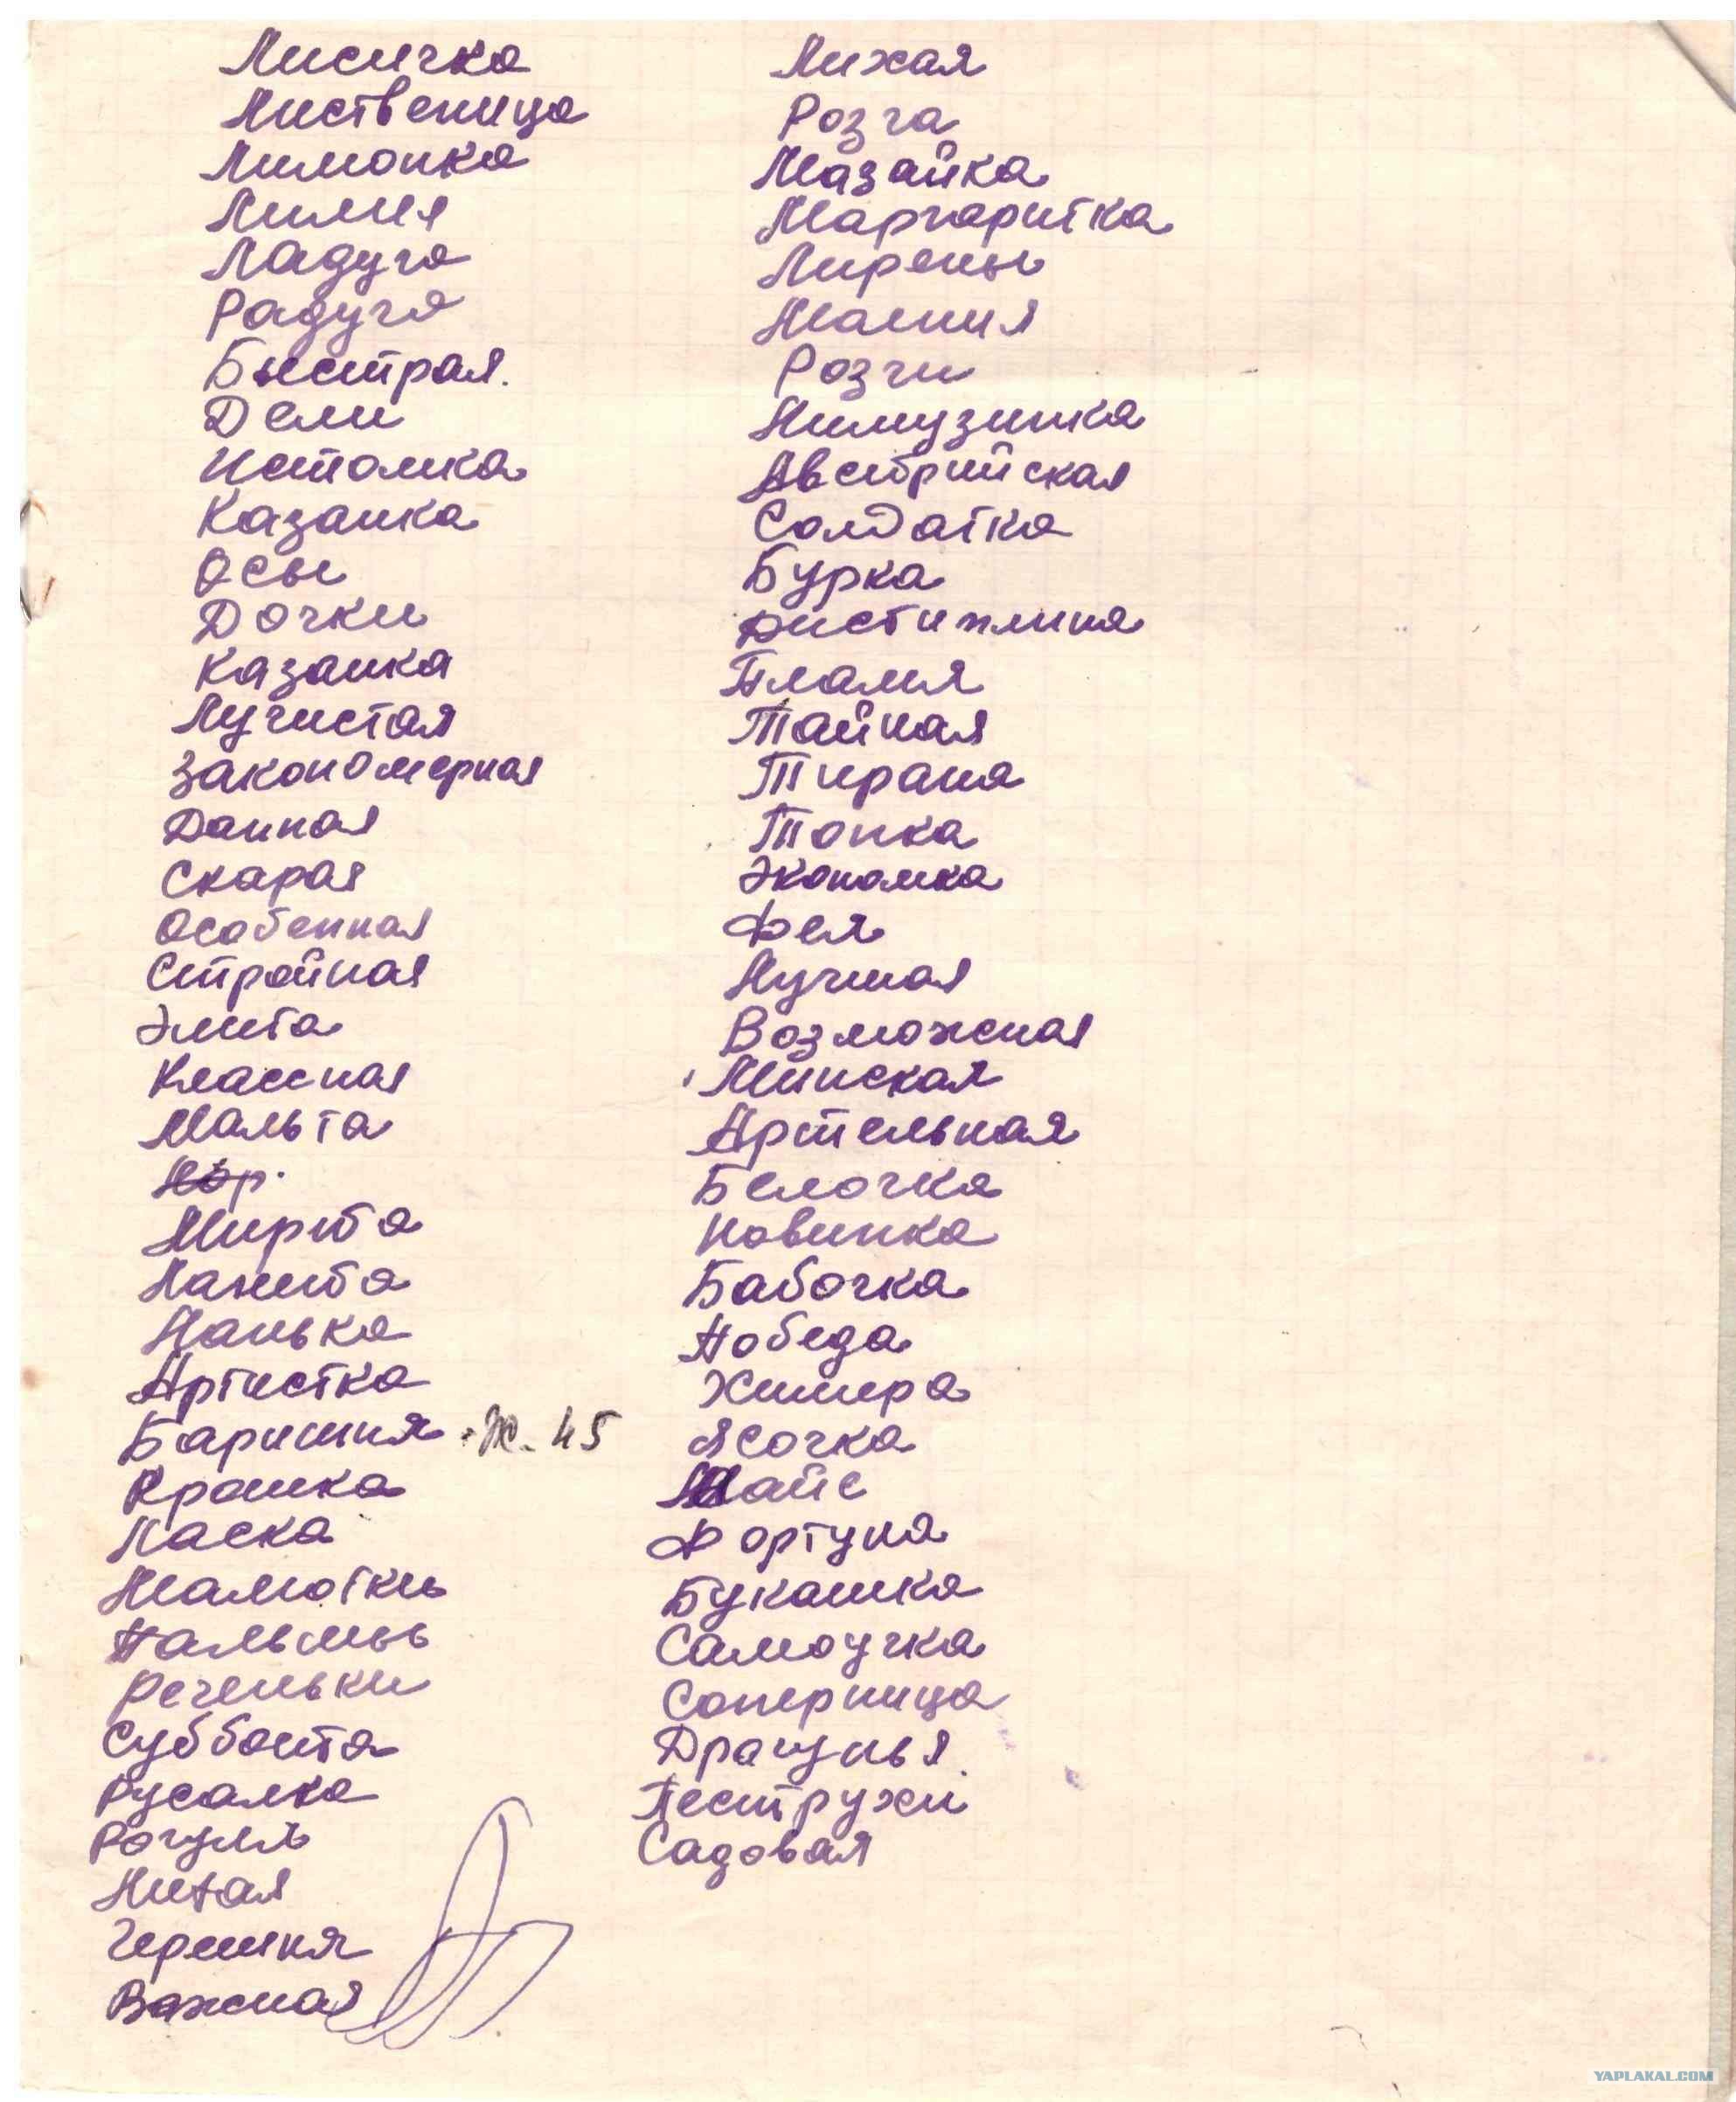 Лисичка
Лиственица
Лимонка
Лилия
Ладуга
Радуга
Быстрая.
Дели
Истомка
Казанка
Осы
Дочки
Казанка
Лучистая
Закономерная
Данная
Скарая
Особенная
Стройная
Элита
Классная
Мальта
Мирта
Панита
Манька
Артистка
Баришня Ж. 45
Крошка
Ласка
Малютки
Пальмы
Реченьки
Суббота
Русалка
Рогуля
Милая
Черешня
Важная
Лихая
Розга
Мазайка
Маргаритка
Лирены
Магния
Розги
Лимузинка
Австрийская
Солдатка
Бурка
Пламя
Тайная
Тирана
Топка
Экономка
Фея
Лучшая
Возможная
Минская
Артельная
Белочка
Новинка
Бабочка
Победа
Химера
Ясочка
Майс
Фортуна
Букашка
Самоучка
Соперница
Драгунья
Пеструхи
Садовая
YAPLAKAL.COM